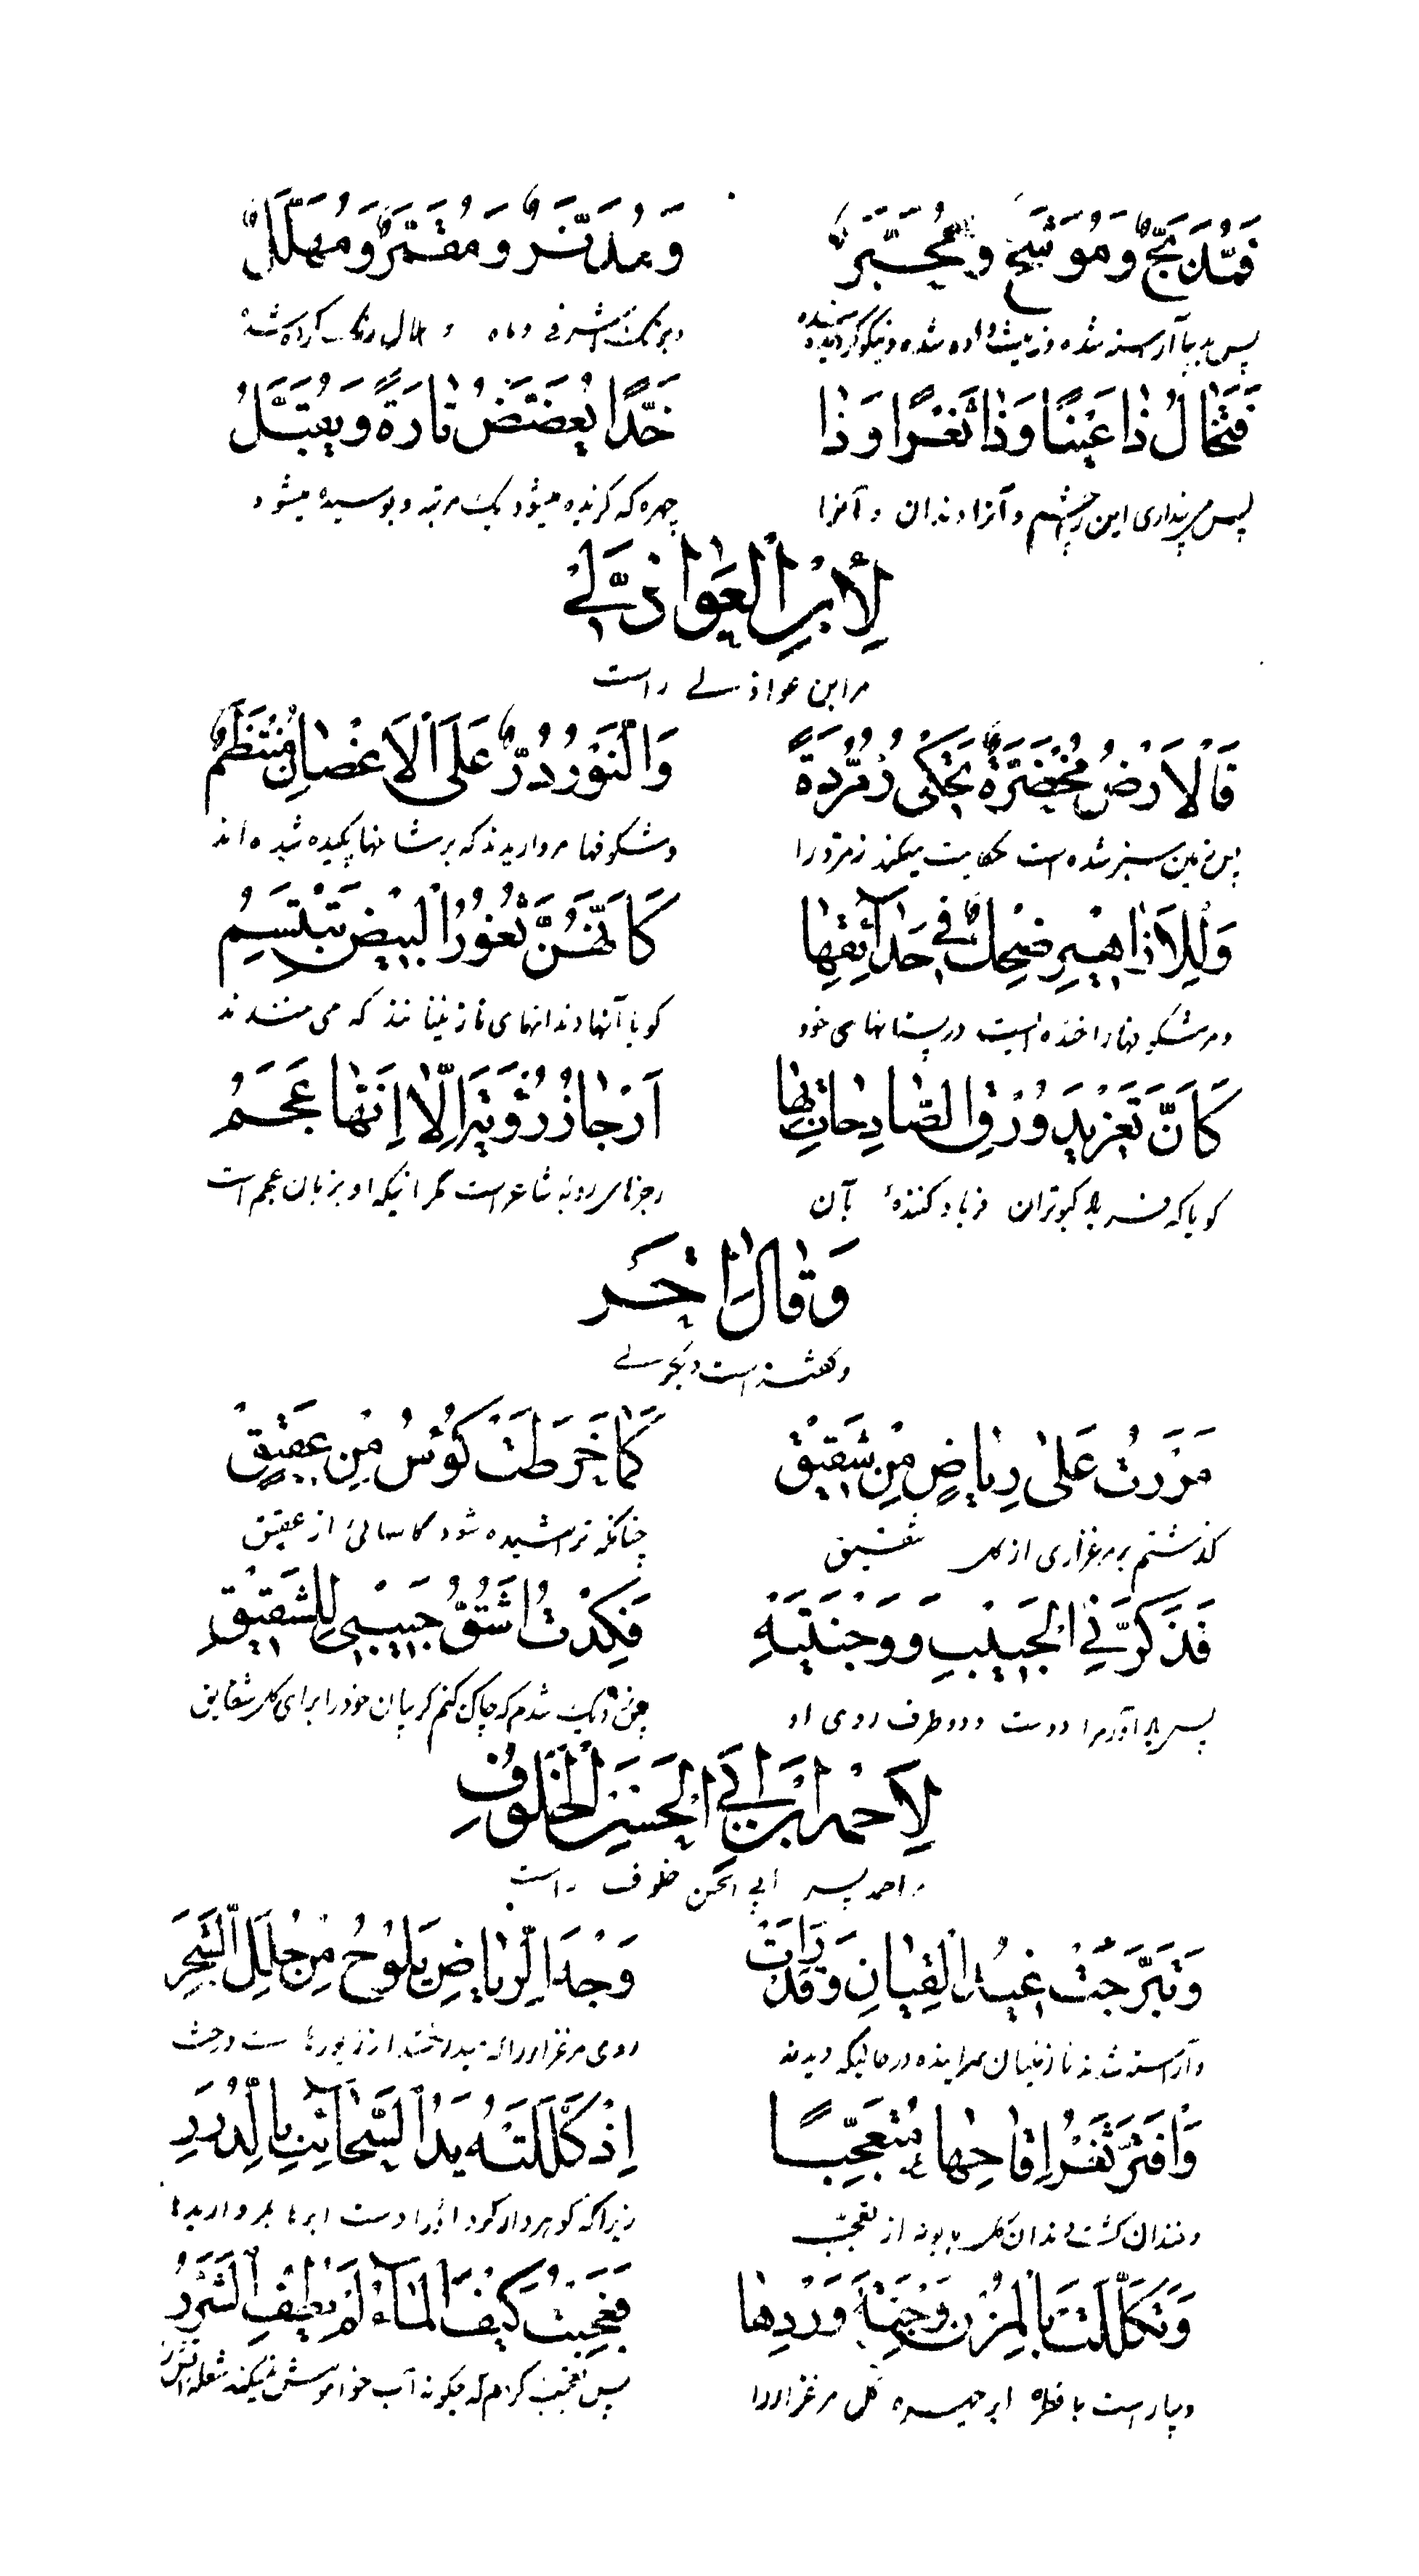 فَمُدَبَّجٌ وَمُوَشَّحٌ وَمُحَبَّرٌ وَمُدَنَّرٌ وَمُقَمَّرٌ وَمُهَلَّلٌ
پس بدیبا آراسته شده و زینت داده شده و نیکو گردیده شده و برنگ اشرفی و ماه و هلال رنگ کرده شد
فَتَخَالُ ذَا عَيْنًا وَذَا ثَغْرًا وَذَا خَدًّا يُعَضَّضُ تَارَةً وَيُقَبَّلُ
پس می‌پنداری این را چشم و آنرا دندان و آنرا چهره که گزیده میشود یک مرتبه و بوسیده میشود
لِأبْنِ الْعَوَاذِلِي
مر ابن عواذلے راست
فَالْاَرْضُ مُخْضَرَّةٌ تَحْكِى زُمُرُّدَةً وَالنَّوْرُ دُرٌّ عَلَى الْاَغْصَانِ مُنْتَظِمُ
پس زمین سبز شده است حکایت میکند زمرد را و شکوفها مرواریدند که بر شاخها چکیده شده‌اند
وَلِلْاَزَاهِيرِ ضِحْكٌ فِي حَدَآئِقِهَا كَاَنَّهُنَّ ثُغُورُ الْبِيضِ تَبْتَسِمُ
و مر شکوفها را خنده است در بستانهای خود گویا آنها دندانهای نازنینانند که می خندند
كَاَنَّ تَغْرِيدَ وُرْقِ الصَّادِحَاتِ بِهَا اَرْجَازُ رُؤْبَةَ اِلَّا اِنَّهَا عَجَمُ
گویا که کبوتران فریاد کنندهٔ بآن رجزهای روبه شاعر است مگر اینکه او بزبان عجم است
وَقَالَ اٰخَر
و گفته است دیگرے
مَرَرْتُ عَلَى رِيَاضٍ مِنْ شَقِيْقٍ كَمَا خَرَطَتْ كَؤُسُ مِنْ عَقِيْقٍ
گذشتم بر مرغزاری از گل شقیق چنانکه تراشیده شود کاسهائی از عقیق
فَذَكَّرَنِي الْحَبِيْبِ وَوَجْنَتَيْهِ فَكِدْتُ اَشُقُّ جَيْبِى لِلشَّقِيْقِ
پس یاد آورد مرا دوست و دو طرف روی او پس نزدیک شدم که چاک کنم گریبان خود را برای گل شقایق
لِاَحْمَد ابْنِ اَبِي الْحَسَنِ الْخَلُوفِ
مر احمد پسر ابی الحسن خلوف راست
وَتَبَرَّجَتْ غِيدُ الْقِيَانِ وَقَدْ رَاَتْ وَجْهَ الرِّيَاضِ يَلُوْحُ مِنْ حُلَلِ الشَّجَرِ
و آراسته شدند نازنینان سراینده در حالیکه دیدند روی مرغزار را که میدرخشد از زیورهای درخت
وَافْتَرَّ ثَغْرُ اِقَاحِهَا مُتَعَجِّبًا اِذْ كَلَّلَتْهُ يَدُ السَّحَآئِبِ بِالدُّرَرِ
و خندان گشت دندان گل بابونه از تعجب زیرا که گوهردار کرد او را دست ابرها بمرواریدها
وَتَكَلَّلَتْ بِالْمُزْنِ وَجْنَةُ وَرْدِهَا فَعَجِبْتُ كَيْفَ الْمَآءُ لَمْ يُطْفِ الشَّرَرُ
و بیاراست با قطره ابر چهره گل مرغزار را پس تعجب کردم که چگونه آب خواموش نمیکند شعله آتش را